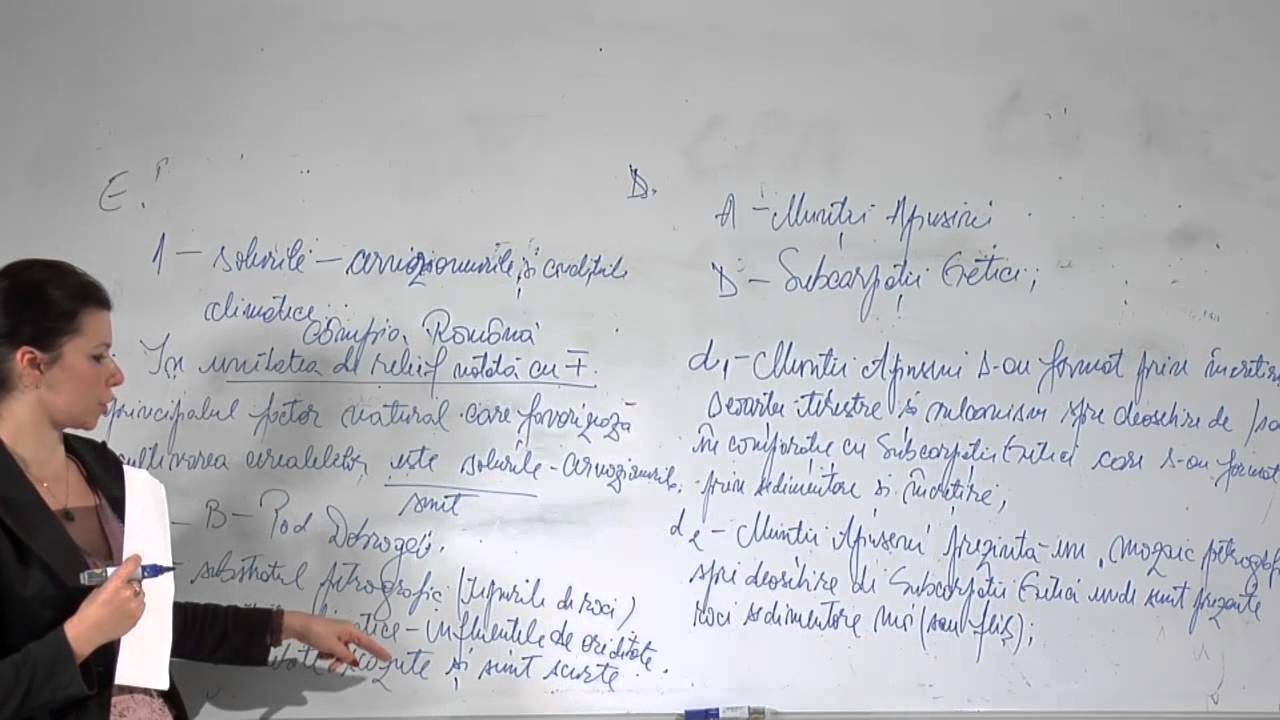 E.
1 – solurile – cernoziomurile și condițiile
climatice
Câmpia Română
În unitatea de relief notată cu F.
principalul factor natural care favorizează
cultivarea cerealelor, este solurile – cernoziomurile.
sunt
– B – Pod. Dobrogei.
– substratul petrografic (tipurile de roci)
– influențele de ariditate.
scăzute și sunt scurte
D.
A – Munții Apuseni
D – Subcarpații Getici;
d1 – Munții Apuseni s-au format prin încrețirea
scoarței terestre și vulcanism spre deosebire de /sau
în comparație cu Subcarpații Getici care s-au format
prin sedimentare și încrețire;
d2 – Munții Apuseni prezintă un mozaic petrografic
spre deosebire de Subcarpații Getici unde sunt prezente
roci sedimentare noi (sau fliș);